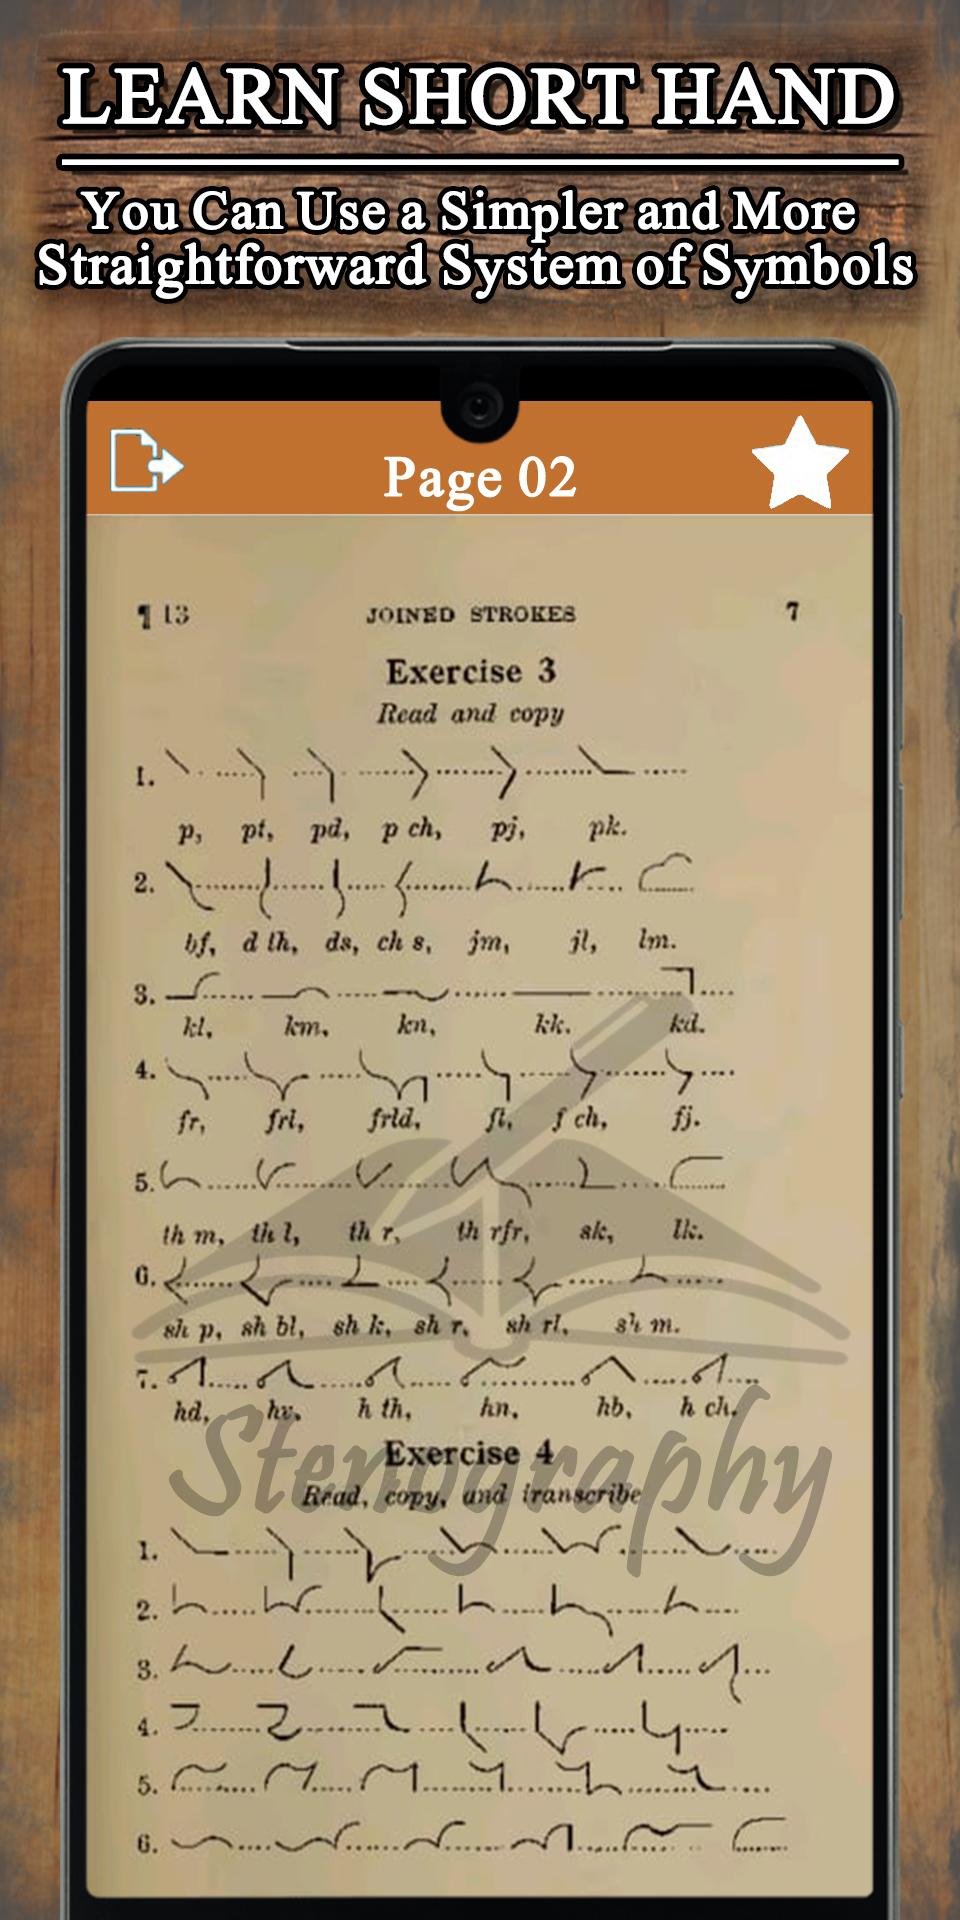 LEARN SHORT HAND
You Can Use a Simpler and More
Straightforward System of Symbols
Page 02
¶ 13 JOINED STROKES 7
Exercise 3
Read and copy
1.
p, pt, pd, p ch, pj, pk.
2.
bf, d th, ds, ch s, jm, jl, lm.
3.
kl, km, kn, kk. kd.
4.
fr, frl, frld, f ch, fj.
5.
th m, th l, th r, th rfr, sk, lk.
6.
sh p, sh bl, sh k, sh r, sh rl, sh m.
7.
hd, hv, h th, hn, hb, h ch.
Stenography
Exercise 4
Read, copy, and transcribe
1.
2.
3.
4.
5.
6.